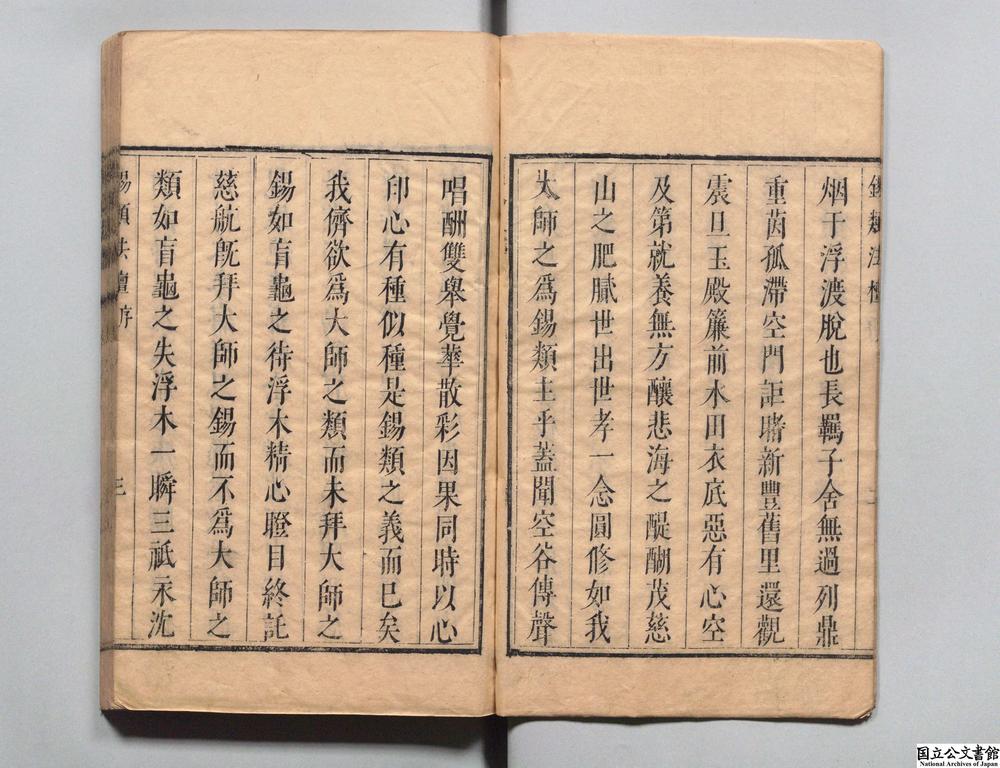 烟于浮渡脫也長羈子舍無過列鼎
重茵孤滯空門詎睹新豐舊里還觀
震旦玉殿簾前水田衣底惡有心空
及第就養無方釀悲海之醍醐茂慈
山之肥膩世出世孝一念圓修如我
大師之爲錫類主乎蓋聞空谷傳聲
唱酬雙舉覺華散彩因果同時以心
印心有種似種是錫類之義而已矣
我儕欲爲大師之類而未拜大師之
錫如盲龜之待浮木精心瞪目終託
慈航旣拜大師之錫而不爲大師之
類如盲龜之失浮木一瞬三祇永沈
錫類法壇序
三
国立公文書館
National Archives of Japan